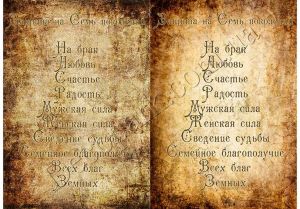 на Семь поколений
На брак
Любовь
Счастье
Радость
Мужская сила
Женская сила
Сведение судьбы
Семейное благополучие
Всех благ
Земных
на Семь
На брак
Любовь
Счастье
Радость
Мужская сила
Женская сила
Сведение судьбы
Семейное благополучие
Всех благ
Земных